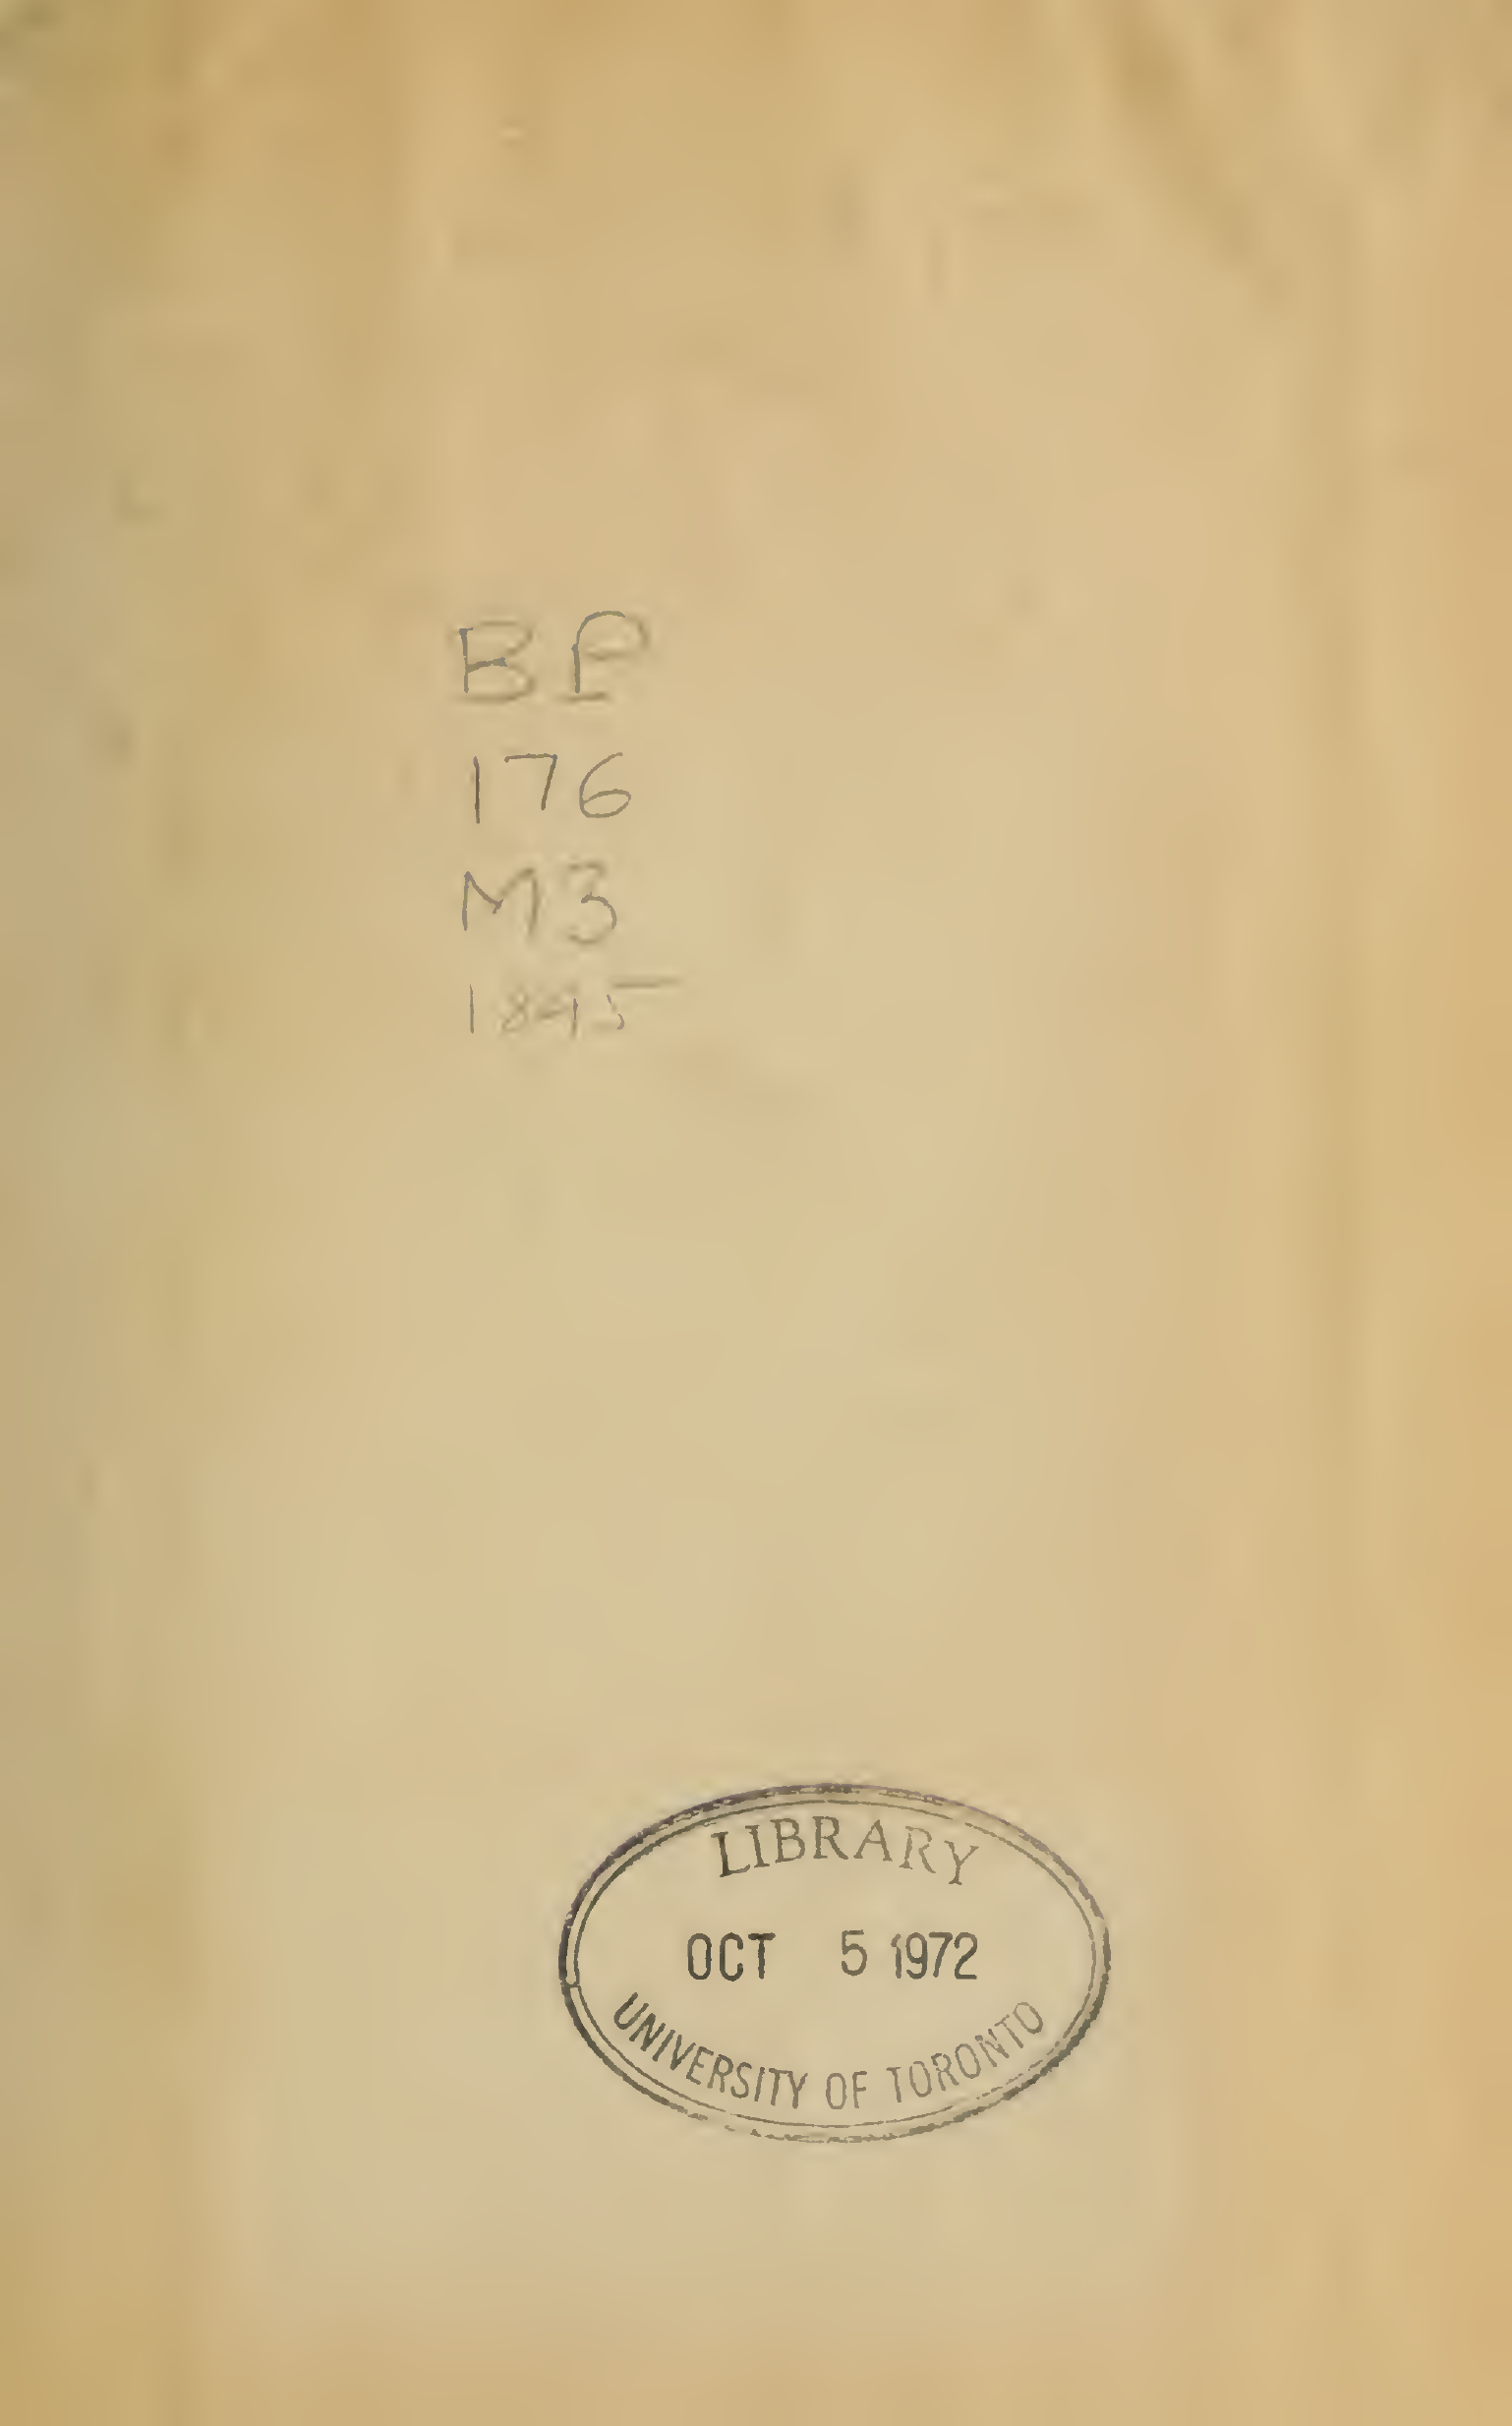 BP
176
M3
1845
LIBRARY
OCT 5 1972
UNIVERSITY OF TORONTO